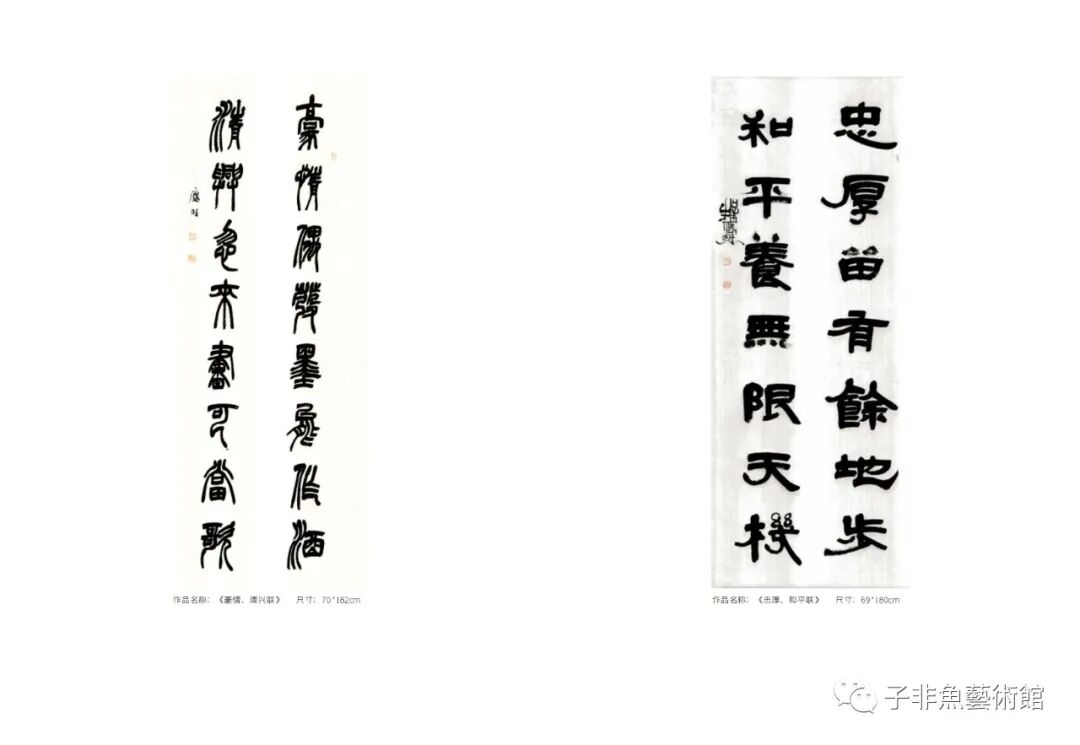 豪情偶發墨能作酒
清興忽來畫可當歌
作品名称：《豪情、清兴联》 尺寸：70*182cm
忠厚畱有餘地步
和平養無限天機
作品名称：《忠厚、和平联》 尺寸：69*180cm
子非魚藝術館